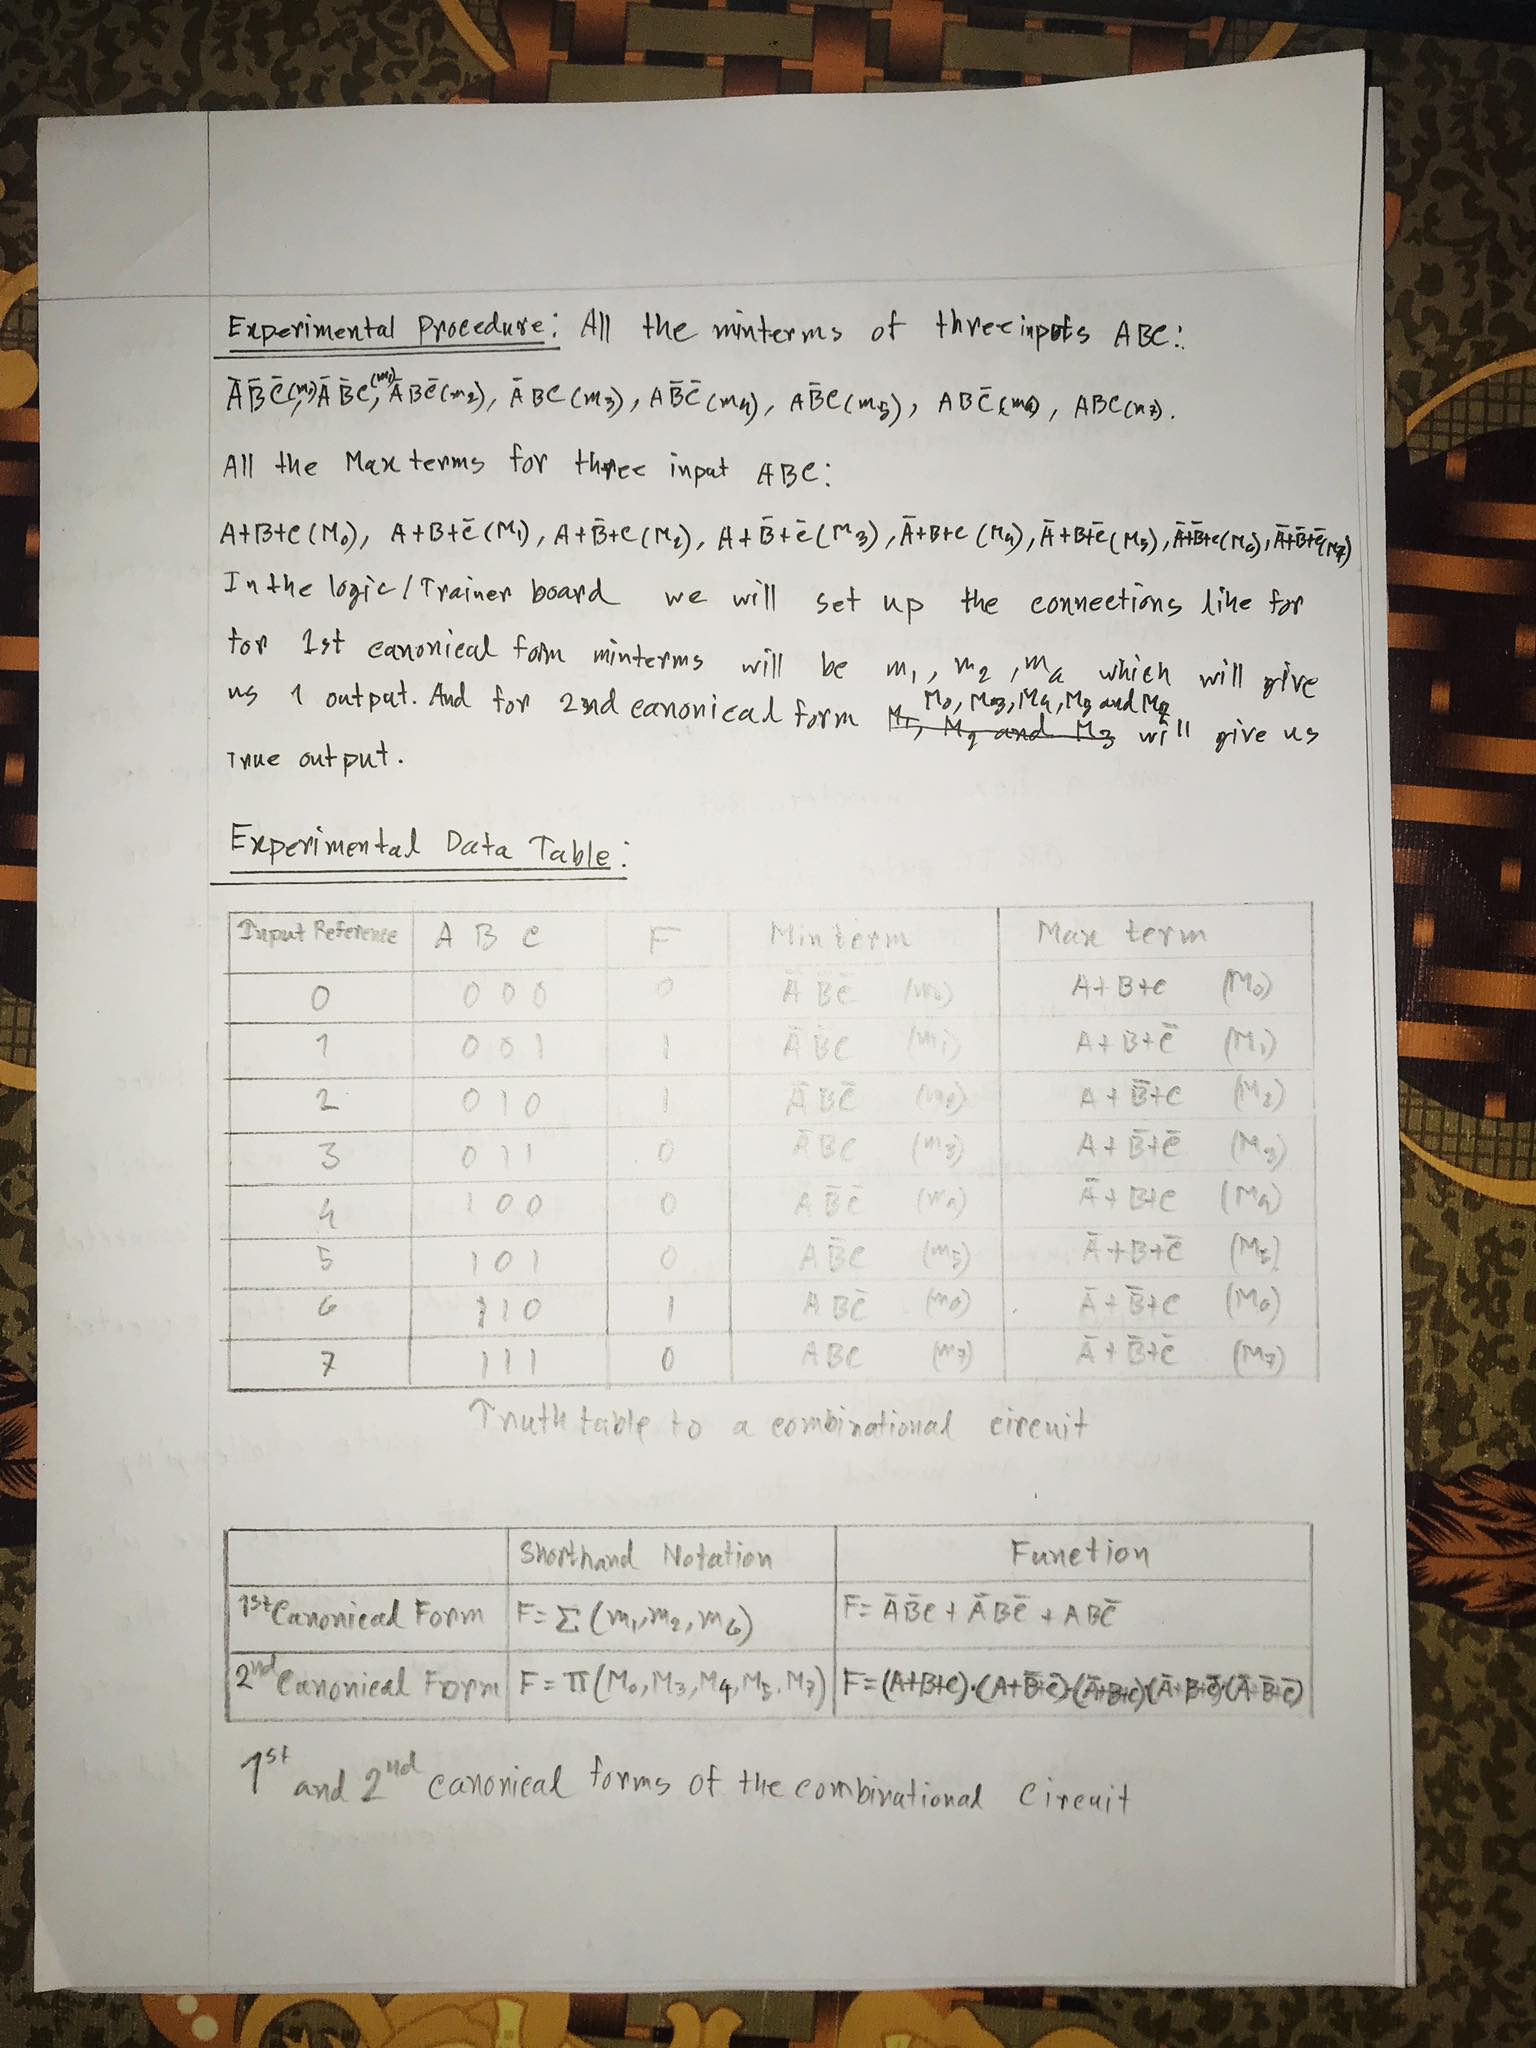 Experimental Procedure: All the minterms of three inputs ABC:
ĀB̄C̄(m₀), ĀB̄C(m₁), ĀBC̄(m₂), ĀBC(m₃), AB̄C̄(m₄), AB̄C(m₅), ABC̄(m₆), ABC(m₇).
All the Max terms for three input ABC:
A+B+C(M₀), A+B+C̄(M₁), A+B̄+C(M₂), A+B̄+C̄(M₃), Ā+B+C(M₄), Ā+B+C̄(M₅), Ā+B̄+C(M₆), Ā+B̄+C̄(M₇)
In the logic/Trainer board we will set up the connections like for
for 1st canonical form minterms will be m₁, m₂, m₆ which will give
M₀, M₃, M₄, M₅ and M₇
us 1 output. And for 2nd canonical form M₁, M₂ and M₃ will give us
True output.
Experimental Data Table:
Input Reference A B C F Minterm Max term
0 0 0 0 0 ĀB̄C̄ (m₀) A+B+C (M₀)
1 0 0 1 1 ĀB̄C (m₁) A+B+C̄ (M₁)
2 0 1 0 1 ĀBC̄ (m₂) A+B̄+C (M₂)
3 0 1 1 0 ĀBC (m₃) A+B̄+C̄ (M₃)
4 1 0 0 0 AB̄C̄ (m₄) Ā+B+C (M₄)
5 1 0 1 0 AB̄C (m₅) Ā+B+C̄ (M₅)
6 1 1 0 1 ABC̄ (m₆) Ā+B̄+C (M₆)
7 1 1 1 0 ABC (m₇) Ā+B̄+C̄ (M₇)
Truth table to a combinational circuit
Shorthand Notation Function
1st Canonical Form F=Σ(m₁,m₂,m₆) F=ĀB̄C+ĀBC̄+ABC̄
2nd Canonical Form F=π(M₀,M₃,M₄,M₅,M₇) F=(A+B+C)·(A+B̄+C̄)·(Ā+B+C)·(Ā+B+C̄)·(Ā+B̄+C̄)
1st and 2nd canonical forms of the combinational circuit